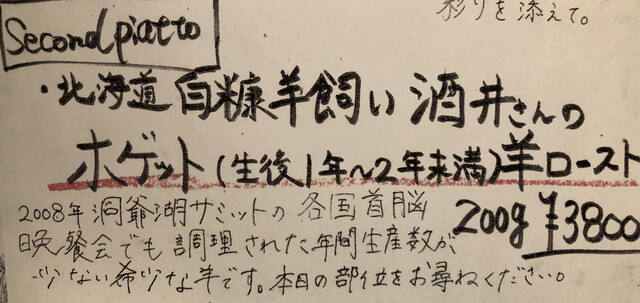 彩りを添えて。
Second piatto
・北海道 白糠羊飼い 酒井さんの
ホゲット(生後1年~2年未満)羊ロースト
200g ¥3800
2008年 洞爺湖サミットの 各国首脳
晩餐会でも調理された年間生産数が
少ない希少な羊です。本日の部位をお尋ねください。